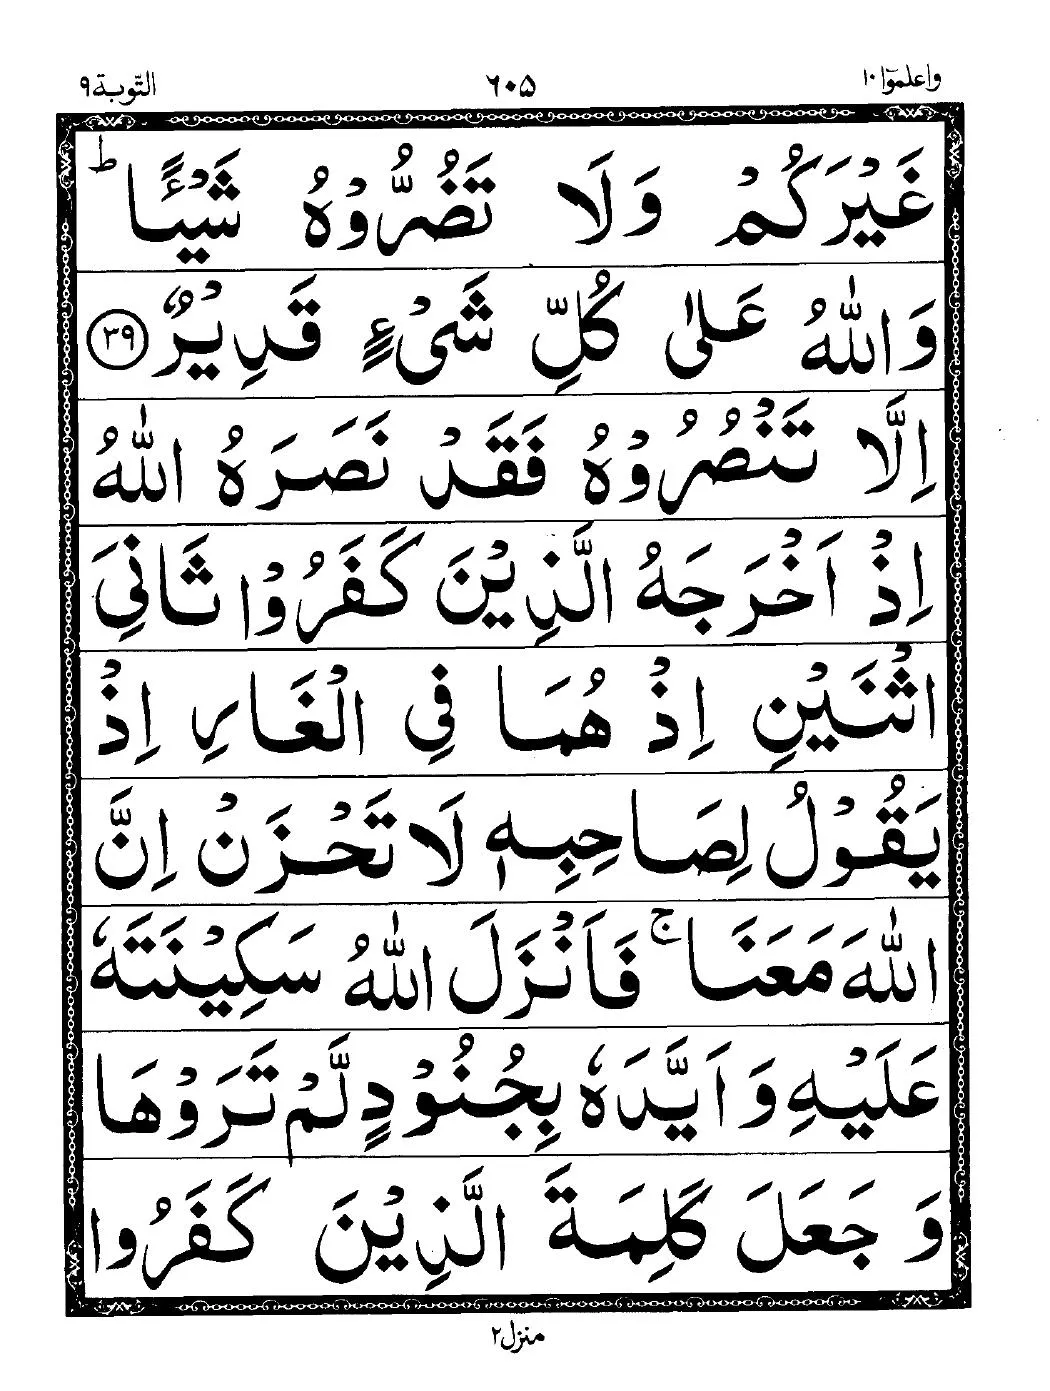 واعلموٓا ١٠ ٦٠٥ التّوبة ٩
غَيْرَكُمْ وَلَا تَضُرُّوْهُ شَيْـًٔا ؕ
وَاللّٰهُ عَلٰى كُلِّ شَىْءٍ قَدِيْرٌ ٣٩
اِلَّا تَنْصُرُوْهُ فَقَدْ نَصَرَهُ اللّٰهُ
اِذْ اَخْرَجَهُ الَّذِيْنَ كَفَرُوْا ثَانِىَ
اثْنَيْنِ اِذْ هُمَا فِى الْغَارِ اِذْ
يَقُوْلُ لِصَاحِبِهٖ لَا تَحْزَنْ اِنَّ
اللّٰهَ مَعَنَا ۚ فَاَنْزَلَ اللّٰهُ سَكِيْنَتَهٗ
عَلَيْهِ وَاَيَّدَهٗ بِجُنُوْدٍ لَّمْ تَرَوْهَا
وَ جَعَلَ كَلِمَةَ الَّذِيْنَ كَفَرُوا
منزل ٢